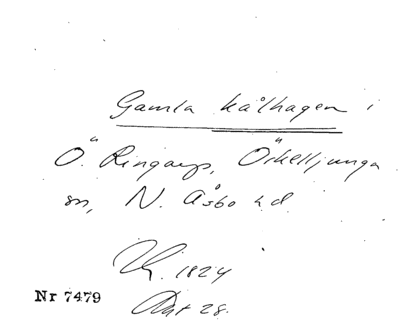 Gamla kålhagen i
Ö. Ringarp, Örkelljunga
sn, N. Åsbo hd
1824
Akt 28.
Nr 7479